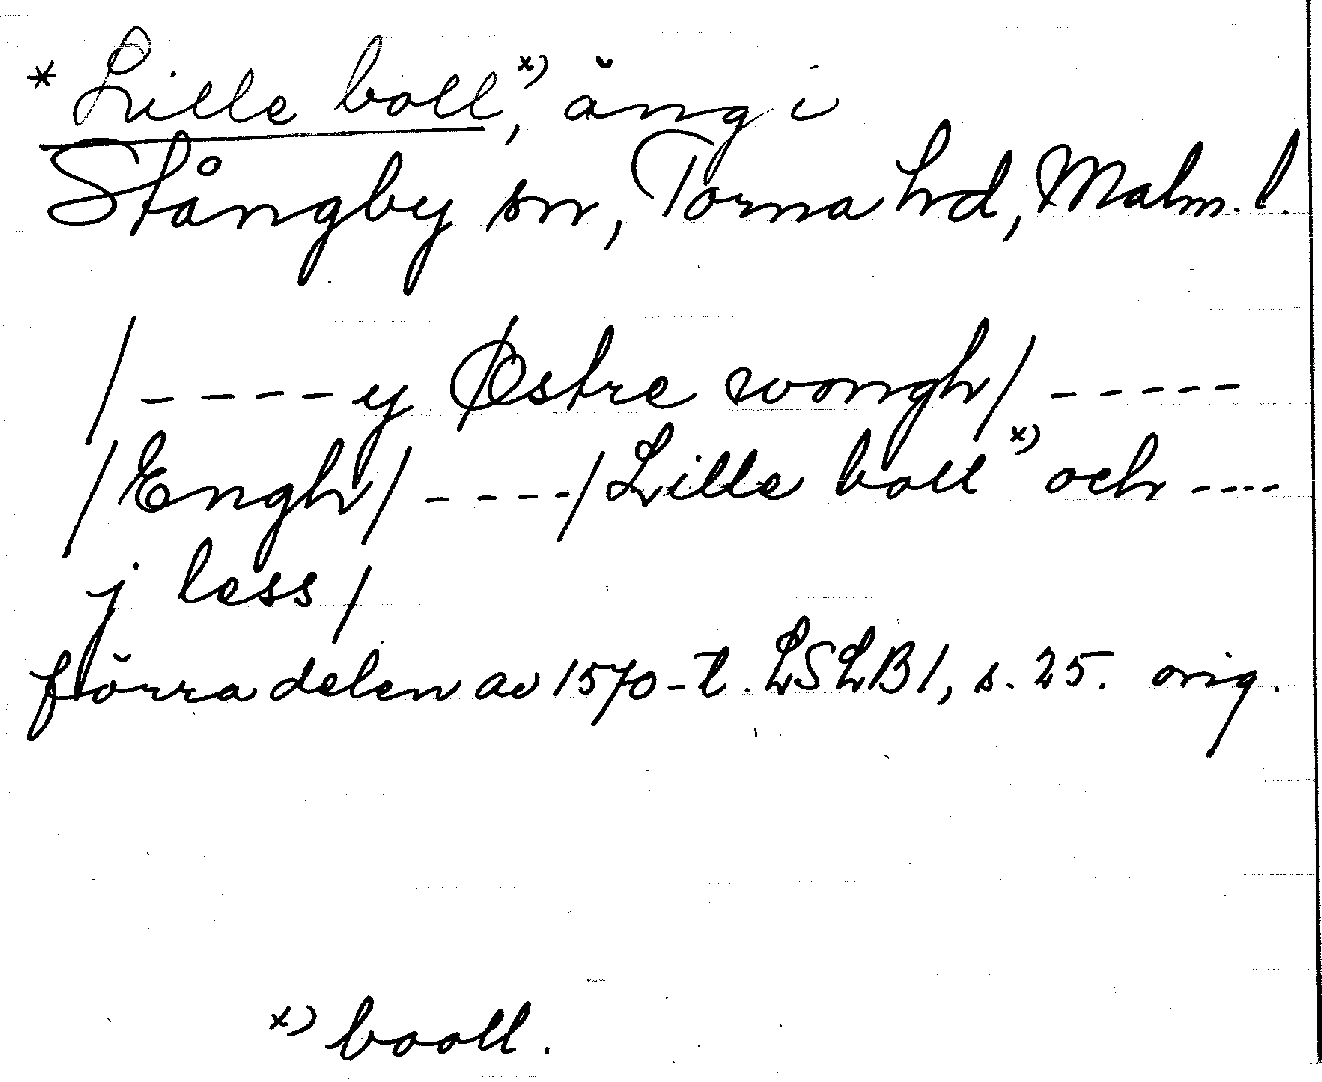 * Lille boll x), äng i
Stångby sn, Torna hd, Malm. l.
/ - - - - - y Østre wongh / - - - - -
/ Engh / - - - - / Lille boll x) och - - - -
j less /
förra delen av 1570-t. LSLB 1, s. 25. orig.
x) booll.